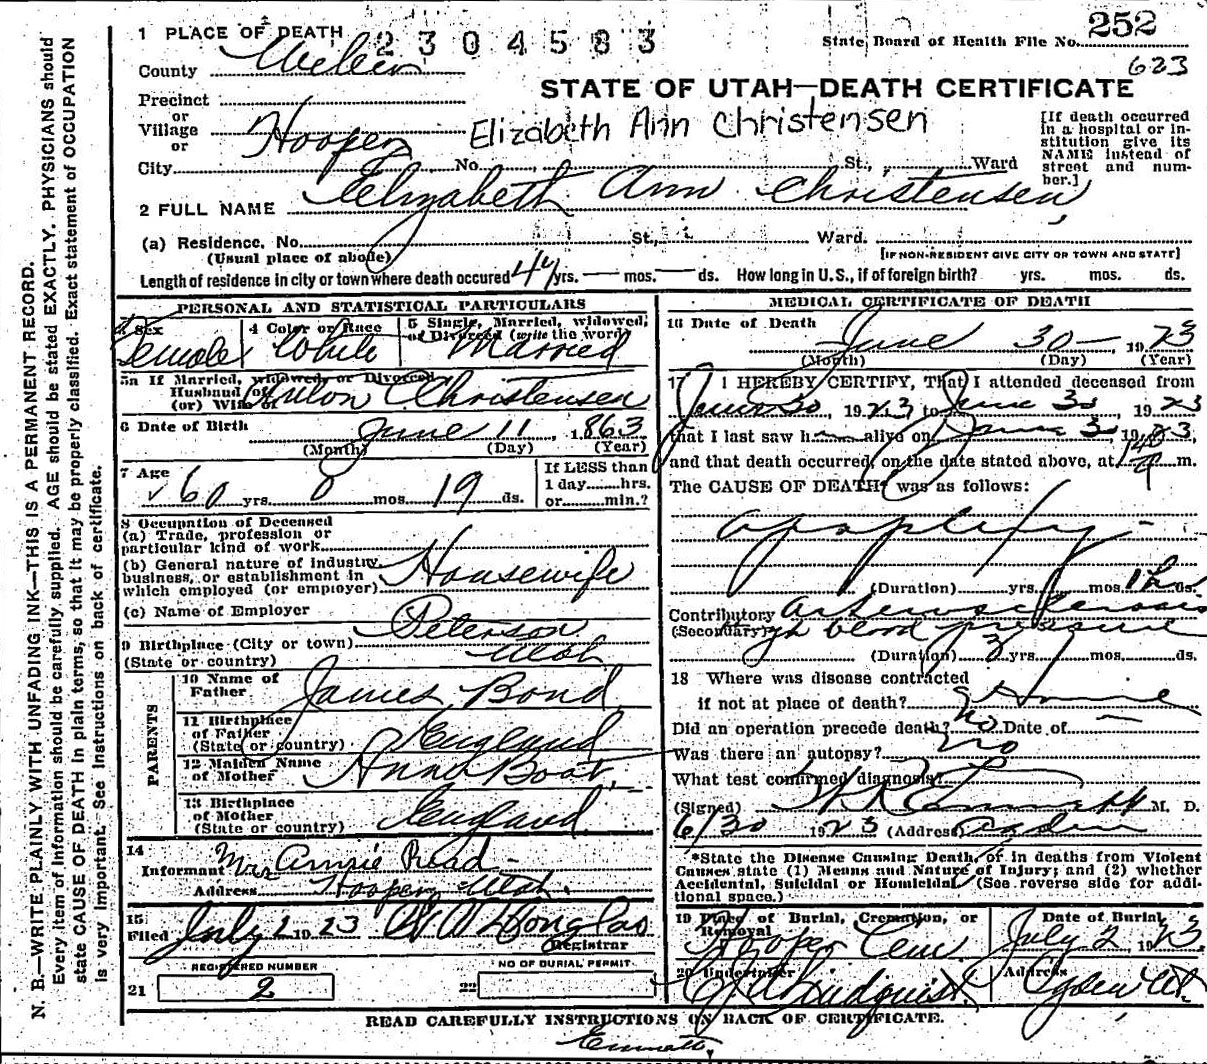 1 PLACE OF DEATH 2304583
State Board of Health File No. 252
623
County Weber
STATE OF UTAH—DEATH CERTIFICATE
Precinct
or
Village
or
City Hooper
Elizabeth Ann Christensen
No. St., Ward
[If death occurred in a hospital or institution give its NAME instead of street and number.]
2 FULL NAME Elizabeth Ann Christensen,
(a) Residence. No. St., Ward.
(Usual place of abode) [IF NON-RESIDENT GIVE CITY OR TOWN AND STATE]
Length of residence in city or town where death occured 44 yrs. — mos. — ds. How long in U.S., if of foreign birth? yrs. mos. ds.
PERSONAL AND STATISTICAL PARTICULARS
3 Sex 4 Color or Race 5 Single, Married, widowed, or Divorced (write the word)
Female White Married
5a If Married, widowed, or Divorced
Husband of
(or) Wife of Anton Christensen
6 Date of Birth June 11, 1863
(Month) (Day) (Year)
7 Age 60 yrs. 0 mos. 19 ds.
If LESS than
1 day......hrs.
or......min.?
8 Occupation of Deceased
(a) Trade, profession or
particular kind of work
(b) General nature of Industry,
business, or establishment in
which employed (or employer) Housewife
(c) Name of Employer
9 Birthplace (City or town) Peterson
(State or country) Utah
PARENTS
10 Name of
Father James Bond
11 Birthplace
of Father
(State or country) England
12 Maiden Name
of Mother Anna Boat,
13 Birthplace
of Mother
(State or country) England
14
Informant Mrs Annie Read
Address Hooper Utah.
15
Filed July 2 1923 Douglas
Registrar
REGISTERED NUMBER
21 2
NO OF BURIAL PERMIT
22
MEDICAL CERTIFICATE OF DEATH
16 Date of Death June 30 — 1923
(Month) (Day) (Year)
17 I HEREBY CERTIFY, That I attended deceased from
June 30, 1923 to June 30 1923
that I last saw h alive on June 30 1923,
and that death occurred, on the date stated above, at m.
The CAUSE OF DEATH* was as follows:
apoplexy —
(Duration) yrs. mos. ds.
Contributory arteriosclerosis
(Secondary) high blood pressure
(Duration) 3 yrs. mos. ds.
18 Where was disease contracted
if not at place of death? Home
Did an operation precede death? no Date of —
Was there an autopsy? no
What test confirmed diagnosis?
(Signed) Emmett M. D.
6/30 1923 (Address) Ogden
*State the Disease Causing Death, or in deaths from Violent
Causes state (1) Means and Nature of Injury; and (2) whether
Accidental, Suicidal or Homicidal (See reverse side for addi-
tional space.)
19 Place of Burial, Cremation, or Removal Date of Burial
Hooper Cem. July 2, 1923.
20 Undertaker Address
Lindquist Ogden Ut.
READ CAREFULLY INSTRUCTIONS ON BACK OF CERTIFICATE.
Emmett,
N. B.—WRITE PLAINLY WITH UNFADING INK—THIS IS A PERMANENT RECORD.
Every item of information should be carefully supplied. AGE should be stated EXACTLY. PHYSICIANS should
state CAUSE OF DEATH in plain terms, so that it may be properly classified. Exact statement of OCCUPATION
is very important. See Instructions on back of certificate.